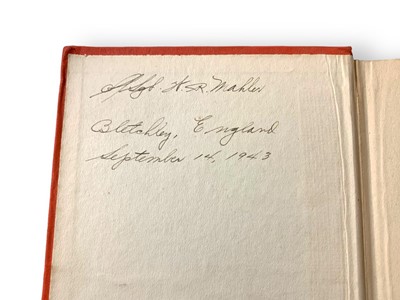 S/Sgt H.R. Mahler
Bletchley, England
September 14, 1943